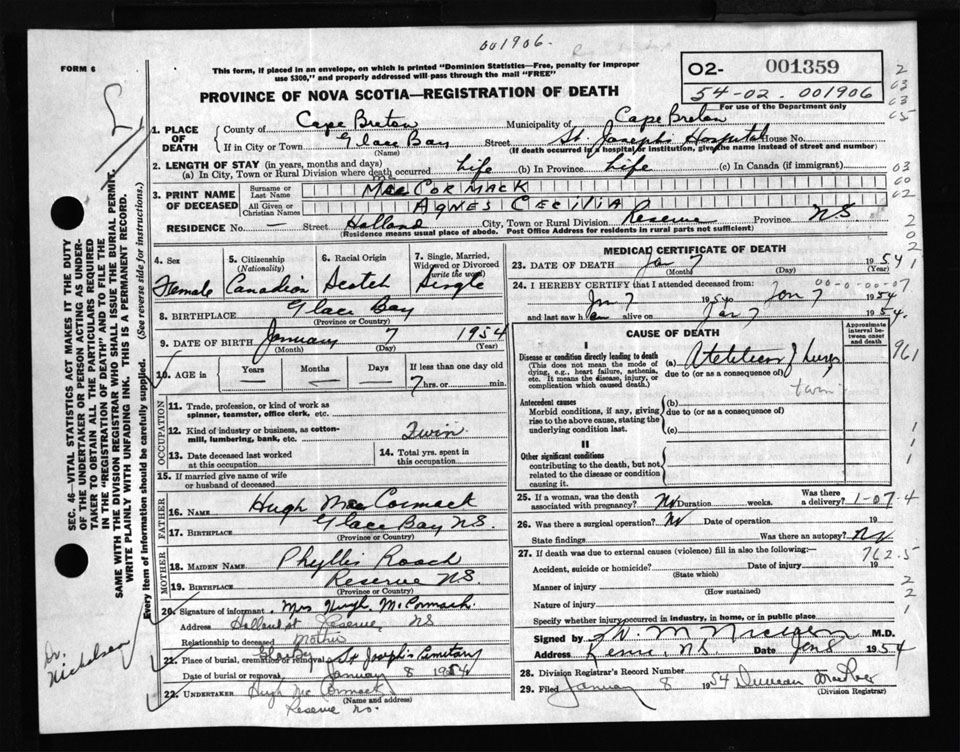 001906.
FORM 6
This form, if placed in an envelope, on which is printed "Dominion Statistics—Free, penalty for improper
use $300," and properly addressed will pass through the mail "FREE"
02- 001359
54-02. 001906
For use of the Department only
PROVINCE OF NOVA SCOTIA—REGISTRATION OF DEATH
1. PLACE OF DEATH
County of Cape Breton Municipality of Cape Breton
If in City or Town Glace Bay Street St. Joseph's Hospital House No.
(Name) (If death occurred in a hospital or institution, give the name instead of street and number)
2. LENGTH OF STAY (in years, months and days)
(a) In City, Town or Rural Division where death occurred Life (b) In Province Life (c) In Canada (if immigrant)
3. PRINT NAME OF DECEASED
Surname or Last Name MacCORMACK
Mc
All Given or Christian Names AGNES CECILIA
RESIDENCE No. — Street Holland City, Town or Rural Division Reserve Province NS
(Residence means usual place of abode. Post Office Address for residents in rural parts not sufficient)
4. Sex
Female
5. Citizenship
(Nationality)
Canadian
6. Racial Origin
Scotch
7. Single, Married,
Widowed or Divorced
(write the word)
Single
8. BIRTHPLACE Glace Bay
(Province or Country)
9. DATE OF BIRTH January 7 1954
(Month) (Day) (Year)
10. AGE in Years Months Days If less than one day old
7 hrs. or min.
OCCUPATION
11. Trade, profession, or kind of work as
spinner, teamster, office clerk, etc.
12. Kind of industry or business, as cotton-
mill, lumbering, bank, etc. Twin
13. Date deceased last worked
at this occupation
14. Total yrs. spent in
this occupation
15. If married give name of wife
or husband of deceased
FATHER
16. NAME Hugh MacCormack
17. BIRTHPLACE Glace Bay NS.
(Province or Country)
MOTHER
18. MAIDEN NAME Phyllis Roach
19. BIRTHPLACE Reserve NS.
(Province or Country)
20. Signature of informant Mrs Hugh McCormack.
Address Holland st Reserve, NS
Relationship to deceased Mother
21. Place of burial, cremation or removal Glace Bay St Joseph's Cemetary
Date of burial or removal January 8 1954
22. UNDERTAKER Hugh McCormack
(Name and address)
Reserve
MEDICAL CERTIFICATE OF DEATH
23. DATE OF DEATH Jan 7 1954
(Month) (Day) (Year)
24. I HEREBY CERTIFY that I attended deceased from:
00-0-00-07
Jan 7 1954 to Jan 7 1954
and last saw h alive on Jan 7 1954.
CAUSE OF DEATH
Approximate interval between onset and death
I
Disease or condition directly leading to death
(This does not mean the mode of
dying, e.g., heart failure, asthenia,
etc. It means the disease, injury, or
complication which caused death.)
(a)
due to (or as a consequence of)
twin
Antecedent causes
Morbid conditions, if any, giving
rise to the above cause, stating the
underlying condition last.
(b)
due to (or as a consequence of)
(c)
II
Other significant conditions
contributing to the death, but not
related to the disease or condition
causing it.
25. If a woman, was the death
associated with pregnancy? No Duration weeks. Was there a delivery?
1-07-4
26. Was there a surgical operation? No Date of operation 19
State findings Was there an autopsy? No
27. If death was due to external causes (violence) fill in also the following:—
762.5
Accident, suicide or homicide? Date of injury 19
(State which)
Manner of injury
(How sustained)
Nature of injury
Specify whether injury occurred in industry, in home, or in public place
Signed by M.D.
Address NS. Date Jan 8 1954
28. Division Registrar's Record Number
29. Filed January 8 1954 Duncan
(Division Registrar)
961
SEC. 46—VITAL STATISTICS ACT MAKES IT THE DUTY
OF THE UNDERTAKER OR PERSON ACTING AS UNDER-
TAKER TO OBTAIN ALL THE PARTICULARS REQUIRED
IN THE "REGISTRATION OF DEATH" AND TO FILE THE
SAME WITH THE DIVISION REGISTRAR WHO SHALL ISSUE THE BURIAL PERMIT.
WRITE PLAINLY WITH UNFADING INK. THIS IS A PERMANENT RECORD.
Every item of information should be carefully supplied. (See reverse side for instructions.)
Dr.
Nicholson